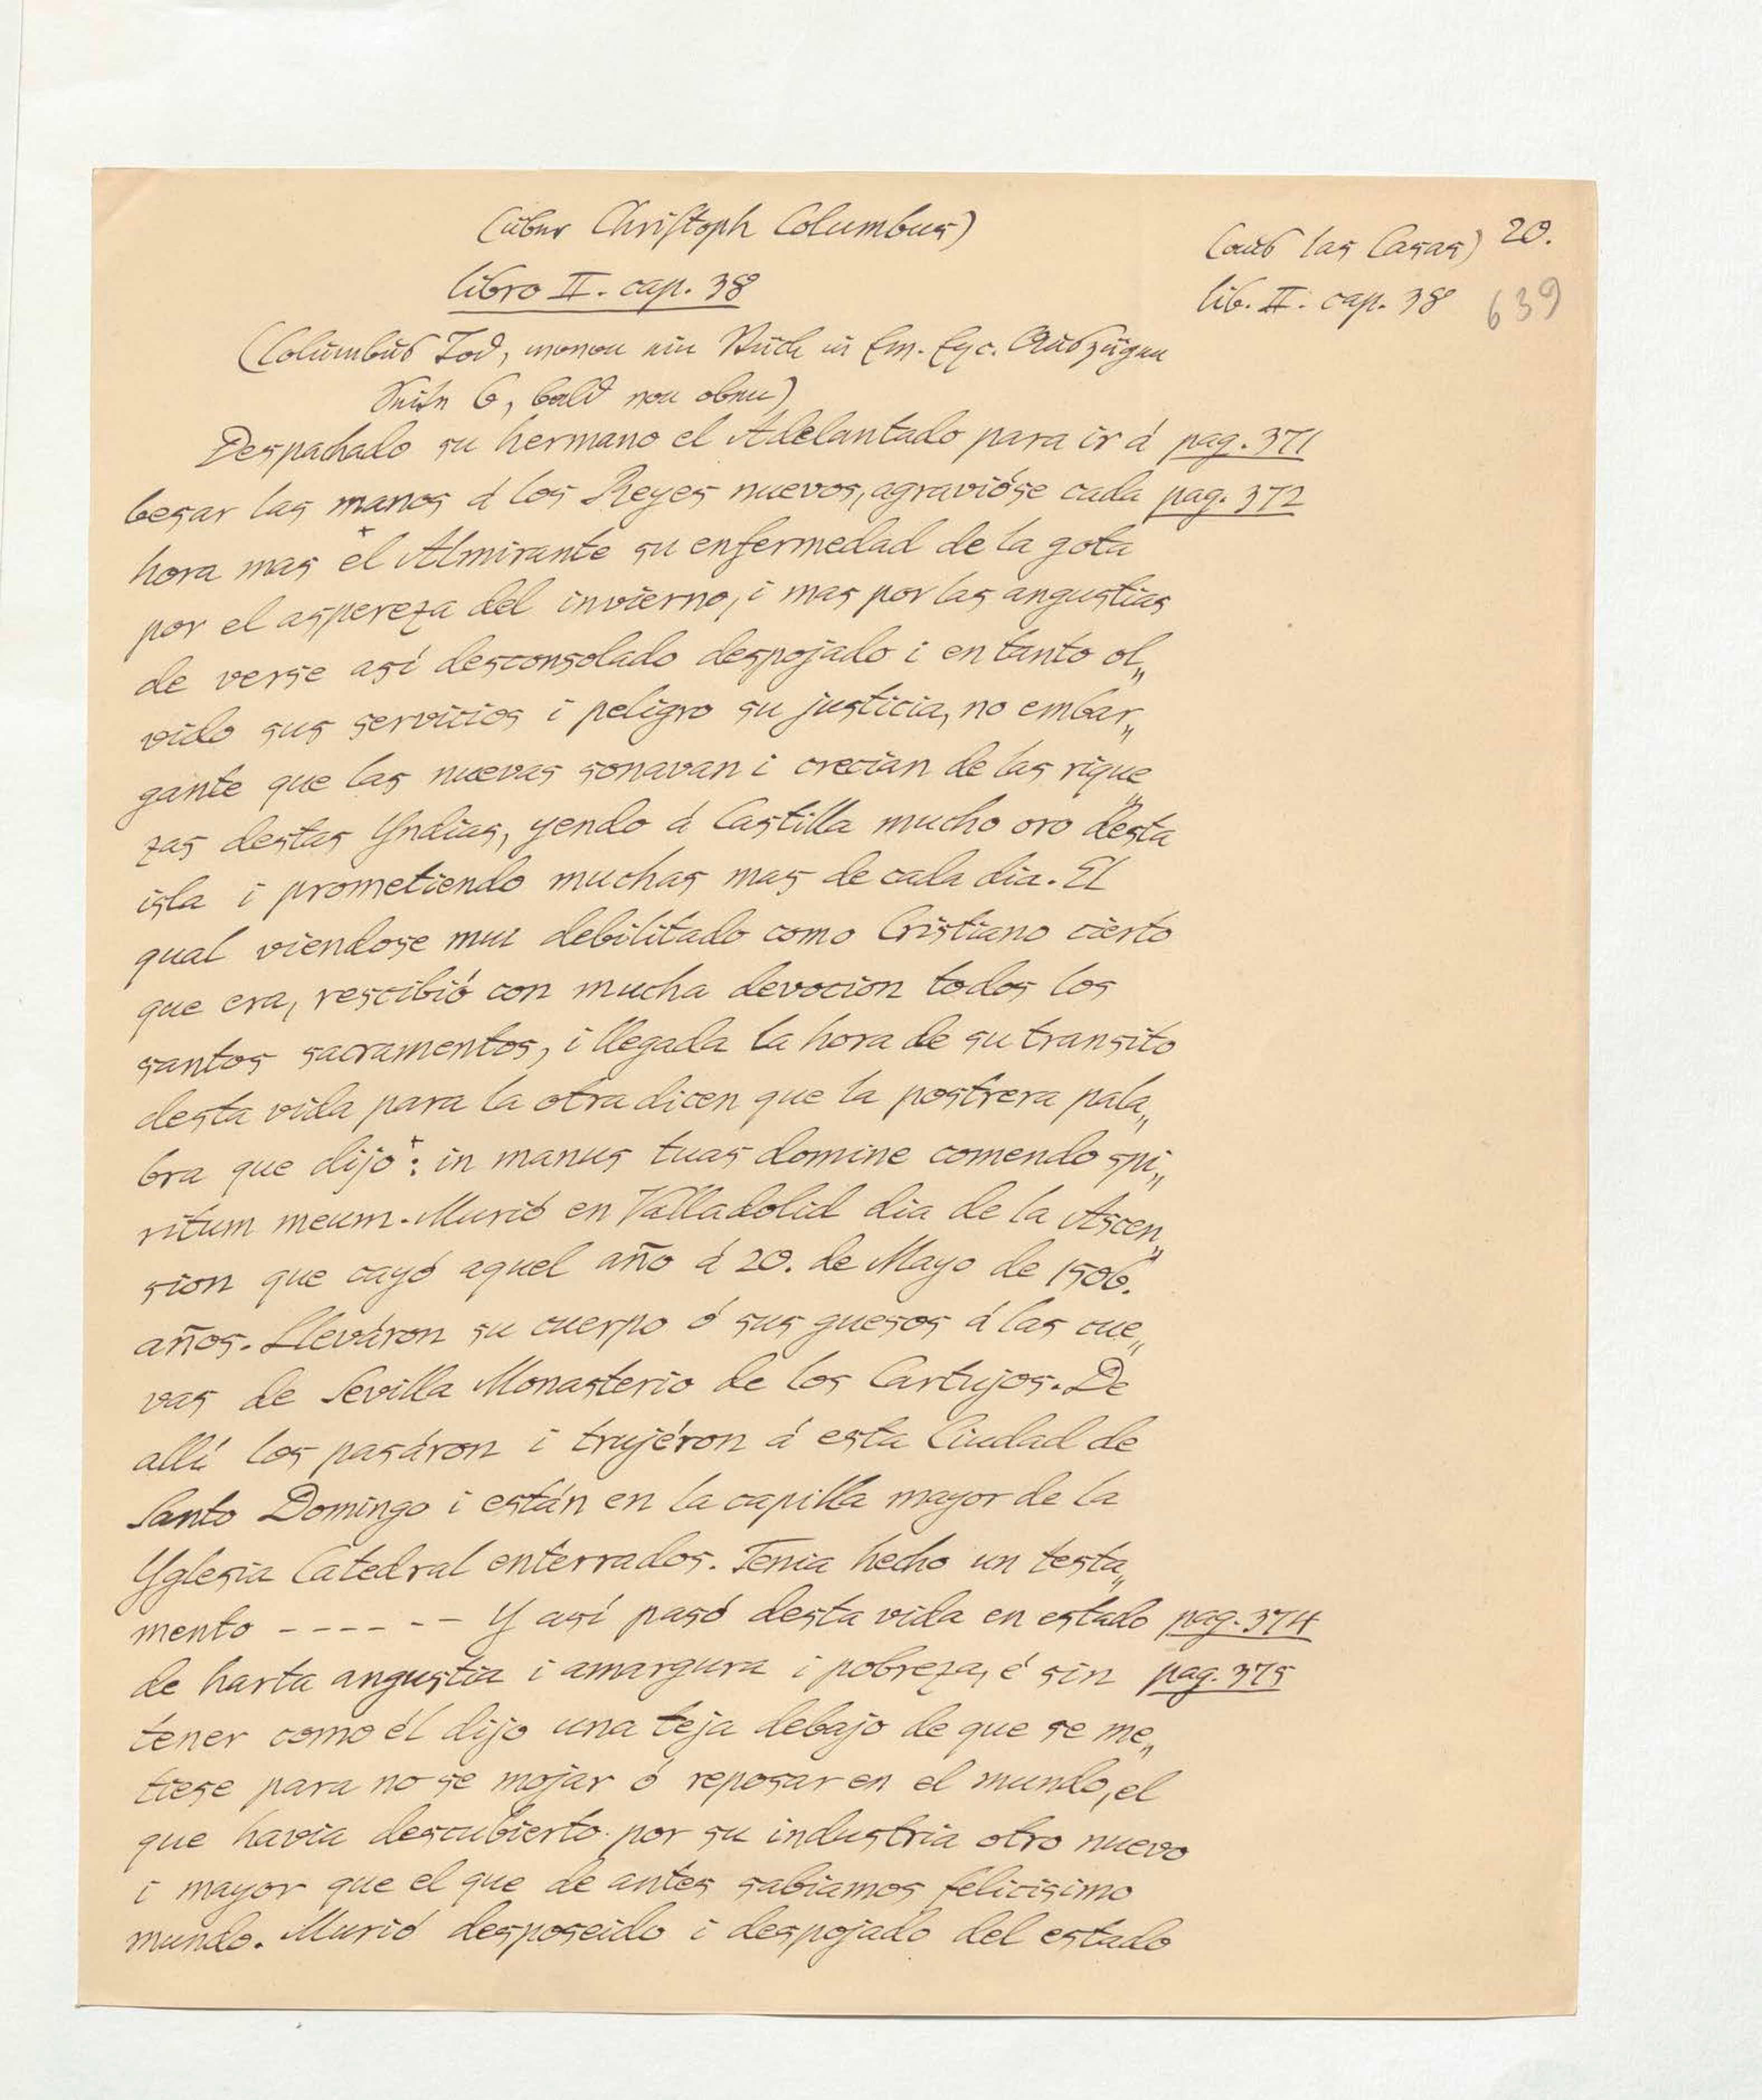 (über Christoph Columbus)
(aus las Casas) 20.
libro II. cap. 38
lib. II. cap. 38 639
(Columbus Tod, wovon ein Stück in Em. Exc. Auszügen
Seite 6, bald von oben)
Despachado su hermano el Adelantado para ir á pag. 371
besar las manos á los Reyes nuevos, agravióse cada pag. 372
hora mas el Almirante su enfermedad de la gota
por el aspereza del invierno, i mas por las angustias
de verse así desconsolado despojado i en tanto ol„
vido sus servicios i peligro su justicia, no embar„
gante que las nuevas sonavan i crecian de las rique„
zas destas Yndias, yendo á Castilla mucho oro desta
isla i prometiendo muchas mas de cada dia. El
qual viendose mui debilitado como Cristiano cierto
que era, rescibió con mucha devocion todos los
santos sacramentos, i llegada la hora de su transito
desta vida para la otra dicen que la postrera pala„
bra que dijo+: in manus tuas domine comendo spi„
ritum meum. Murió en Valladolid dia de la Ascen„
sion que cayó aquel año á 20. de Mayo de 1506.
años. Lleváron su cuerpo ó sus guesos á las cue„
vas de Sevilla Monasterio de los Cartujos. De
allí los pasáron i trujéron á esta Ciudad de
Santo Domingo i están en la capilla mayor de la
Yglesia Catedral enterrados. Tenia hecho un testa„
mento ------ Y así pasó desta vida en estado pag. 374
de harta angustia i amargura i pobreza, é sin pag. 375
tener como él dijo una teja debajo de que se me„
tiese para no se mojar ó reposar en el mundo, el
que havia descubierto por su industria otro nuevo
i mayor que el que de antes sabiamos felicisimo
mundo. Murió desposeido i despojado del estado